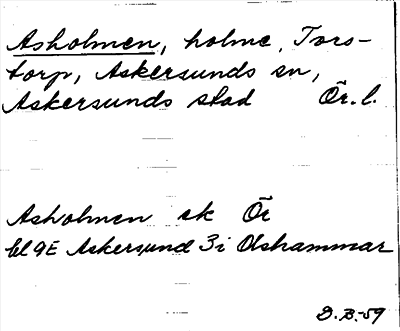 Asholmen, holme, Tors-
torp, Askersunds sn,
Askersunds stad Ör. l.
Asholmen ek Ör
bl 9E Askersund 3 i Olshammar
D.B.-59